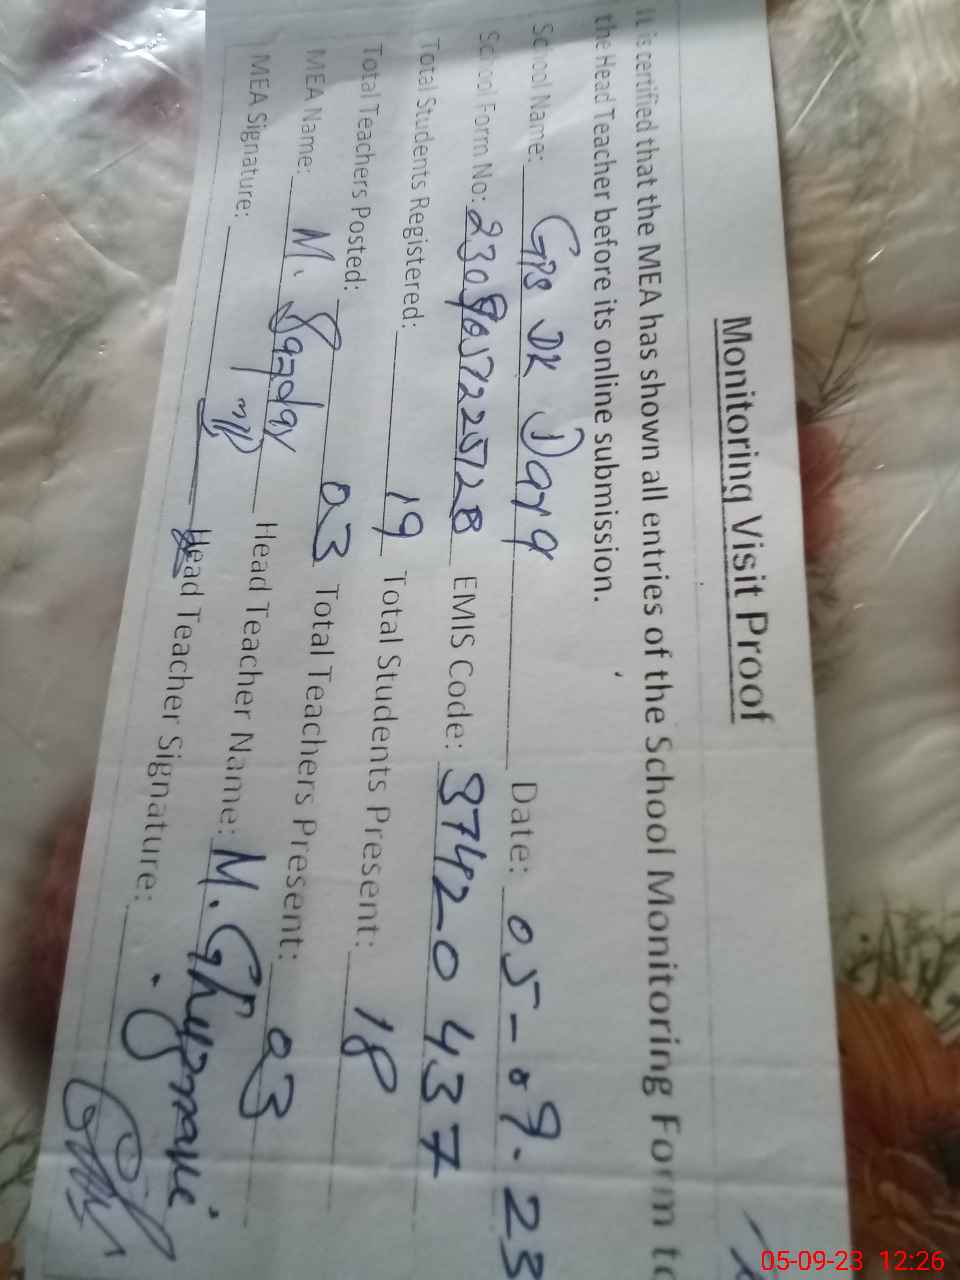 Monitoring Visit Proof
It is certified that the MEA has shown all entries of the School Monitoring Form to
the Head Teacher before its online submission.
School Name: GPS DK Date: 05-09-23
School Form No: EMIS Code: 37420437
Total Students Registered: 19 Total Students Present: 18
Total Teachers Posted: 03 Total Teachers Present: 03
MEA Name: M. Head Teacher Name: M.
MEA Signature: Head Teacher Signature:
05-09-23 12:26